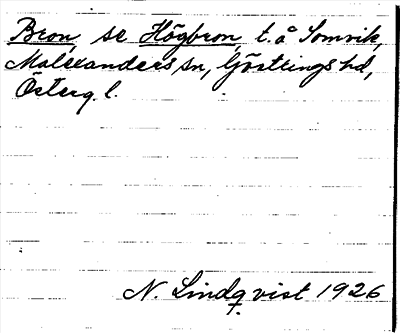 Bron, se Högbron, t. å Somvik,
Malexanders sn, Göstrings hd,
Österg. l.
N. Lindqvist 1926